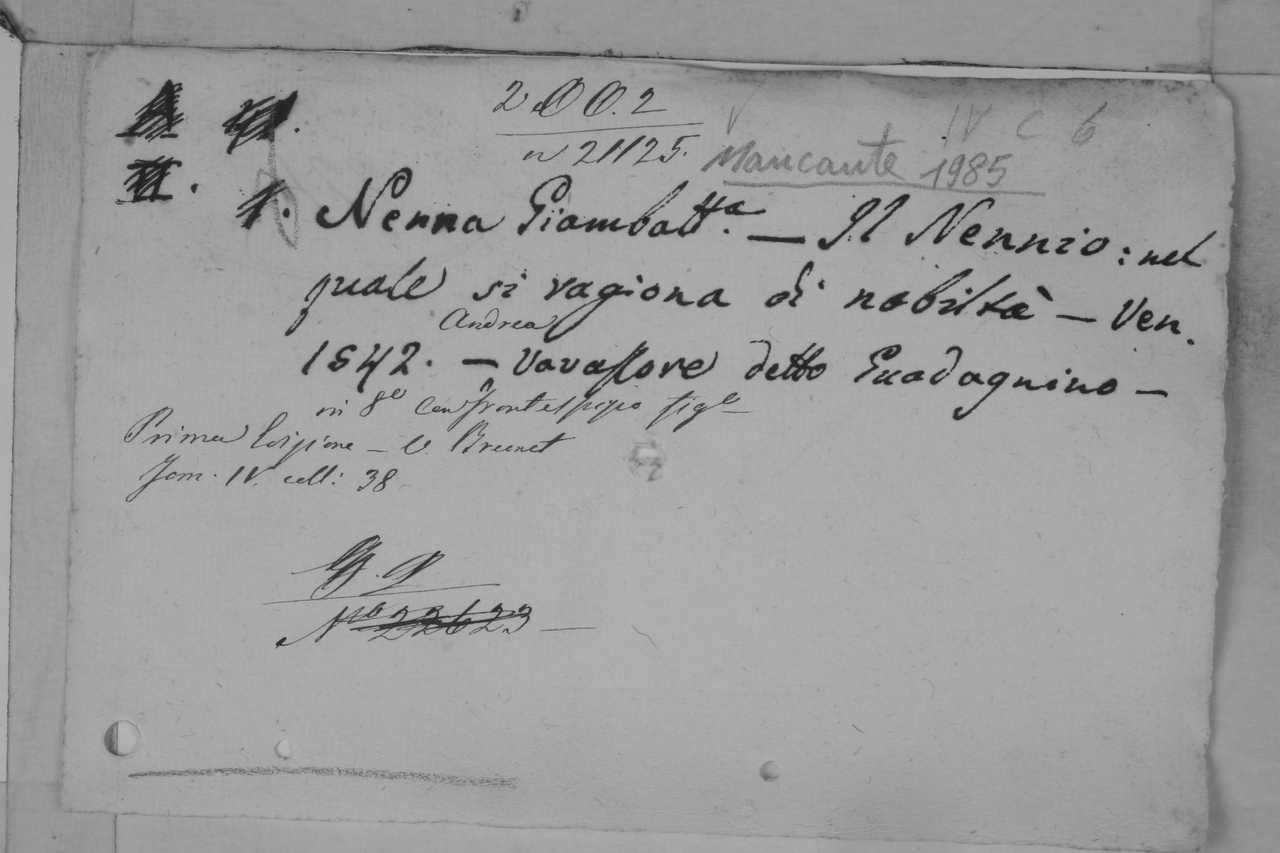 2 OO. 2
n 21125.
IV C 6
Mancante 1985
II.
1. Nenna Giambatt.a — Il Nennio: nel
quale si ragiona di nobiltà — Ven.
Andrea
1542. — Vavassore detto Guadagnino —
in 8o con frontespizio figo
Prima Edizione — V. Brunet
Tom. IV. coll: 38
G. P
No 22623 —